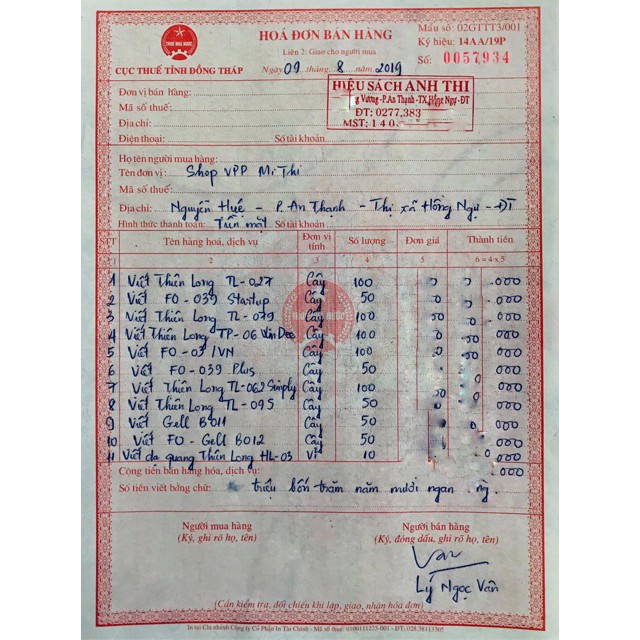 HOÁ ĐƠN BÁN HÀNG
Liên 2: Giao cho người mua
Ngày 09 tháng 8 năm 2019
Mẫu số: 02GTTT3/001
Ký hiệu: 14AA/19P
Số: 0057934
THUẾ NHÀ NƯỚC
CỤC THUẾ TỈNH ĐỒNG THÁP
HIỆU SÁCH ANH THI
Vương -P.An Thạnh-TX.Hồng Ngự-ĐT
ĐT: 0277.383
MST: 140
Đơn vị bán hàng:
Mã số thuế:
Địa chỉ:
Điện thoại: Số tài khoản:
Họ tên người mua hàng:
Tên đơn vị: Shop VPP Mi Thi
Mã số thuế:
Địa chỉ: Nguyễn Huệ - P. An Thạnh - Thị xã Hồng Ngự - ĐT
Hình thức thanh toán: Tiền mặt Số tài khoản:
STT Tên hàng hoá, dịch vụ Đơn vị tính Số lượng Đơn giá Thành tiền
2 3 4 5 6 = 4 x 5
1 Viết Thiên Long TL-027 Cây 100 000
2 Viết FO-039 Startup Cây 50 000
3 Viết Thiên Long TL-079 Cây 100 000
4 Viết Thiên Long TP-06 Cây 100 000
5 Viết FO-03/VN Cây 100 000
6 Viết FO-039 Plus Cây 50 000
7 Viết Thiên Long TL-062 Simply Cây 100 000
8 Viết Thiên Long TL-095 Cây 50 000
9 Viết Gell B011 Cây 50 000
10 Viết FO-Gell B012 Cây 50 000
11 Viết dạ quang Thiên Long HL-03 Vỉ 10 000
Cộng tiền bán hàng hóa, dịch vụ: 000
Số tiền viết bằng chữ: triệu bốn trăm năm mươi ngàn
Người mua hàng Người bán hàng
(Ký, ghi rõ họ, tên) (Ký, đóng dấu, ghi rõ họ, tên)
Van
Lý Ngọc Vân
(Cần kiểm tra, đối chiếu khi lập, giao, nhận hóa đơn)
In tại Chi nhánh Công ty Cổ Phần In Tài Chính - Mã số thuế: 0100111225-001 - ĐT: 028.38113305